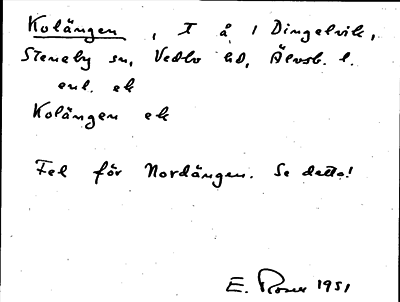 Kolängen, T å 1 Dingelvik,
Steneby sn, Vedbo hd, Älvsb. l.
enl. ek
Kolängen ek
Fel för Nordängen. Se detta!
E. Rosell 1951